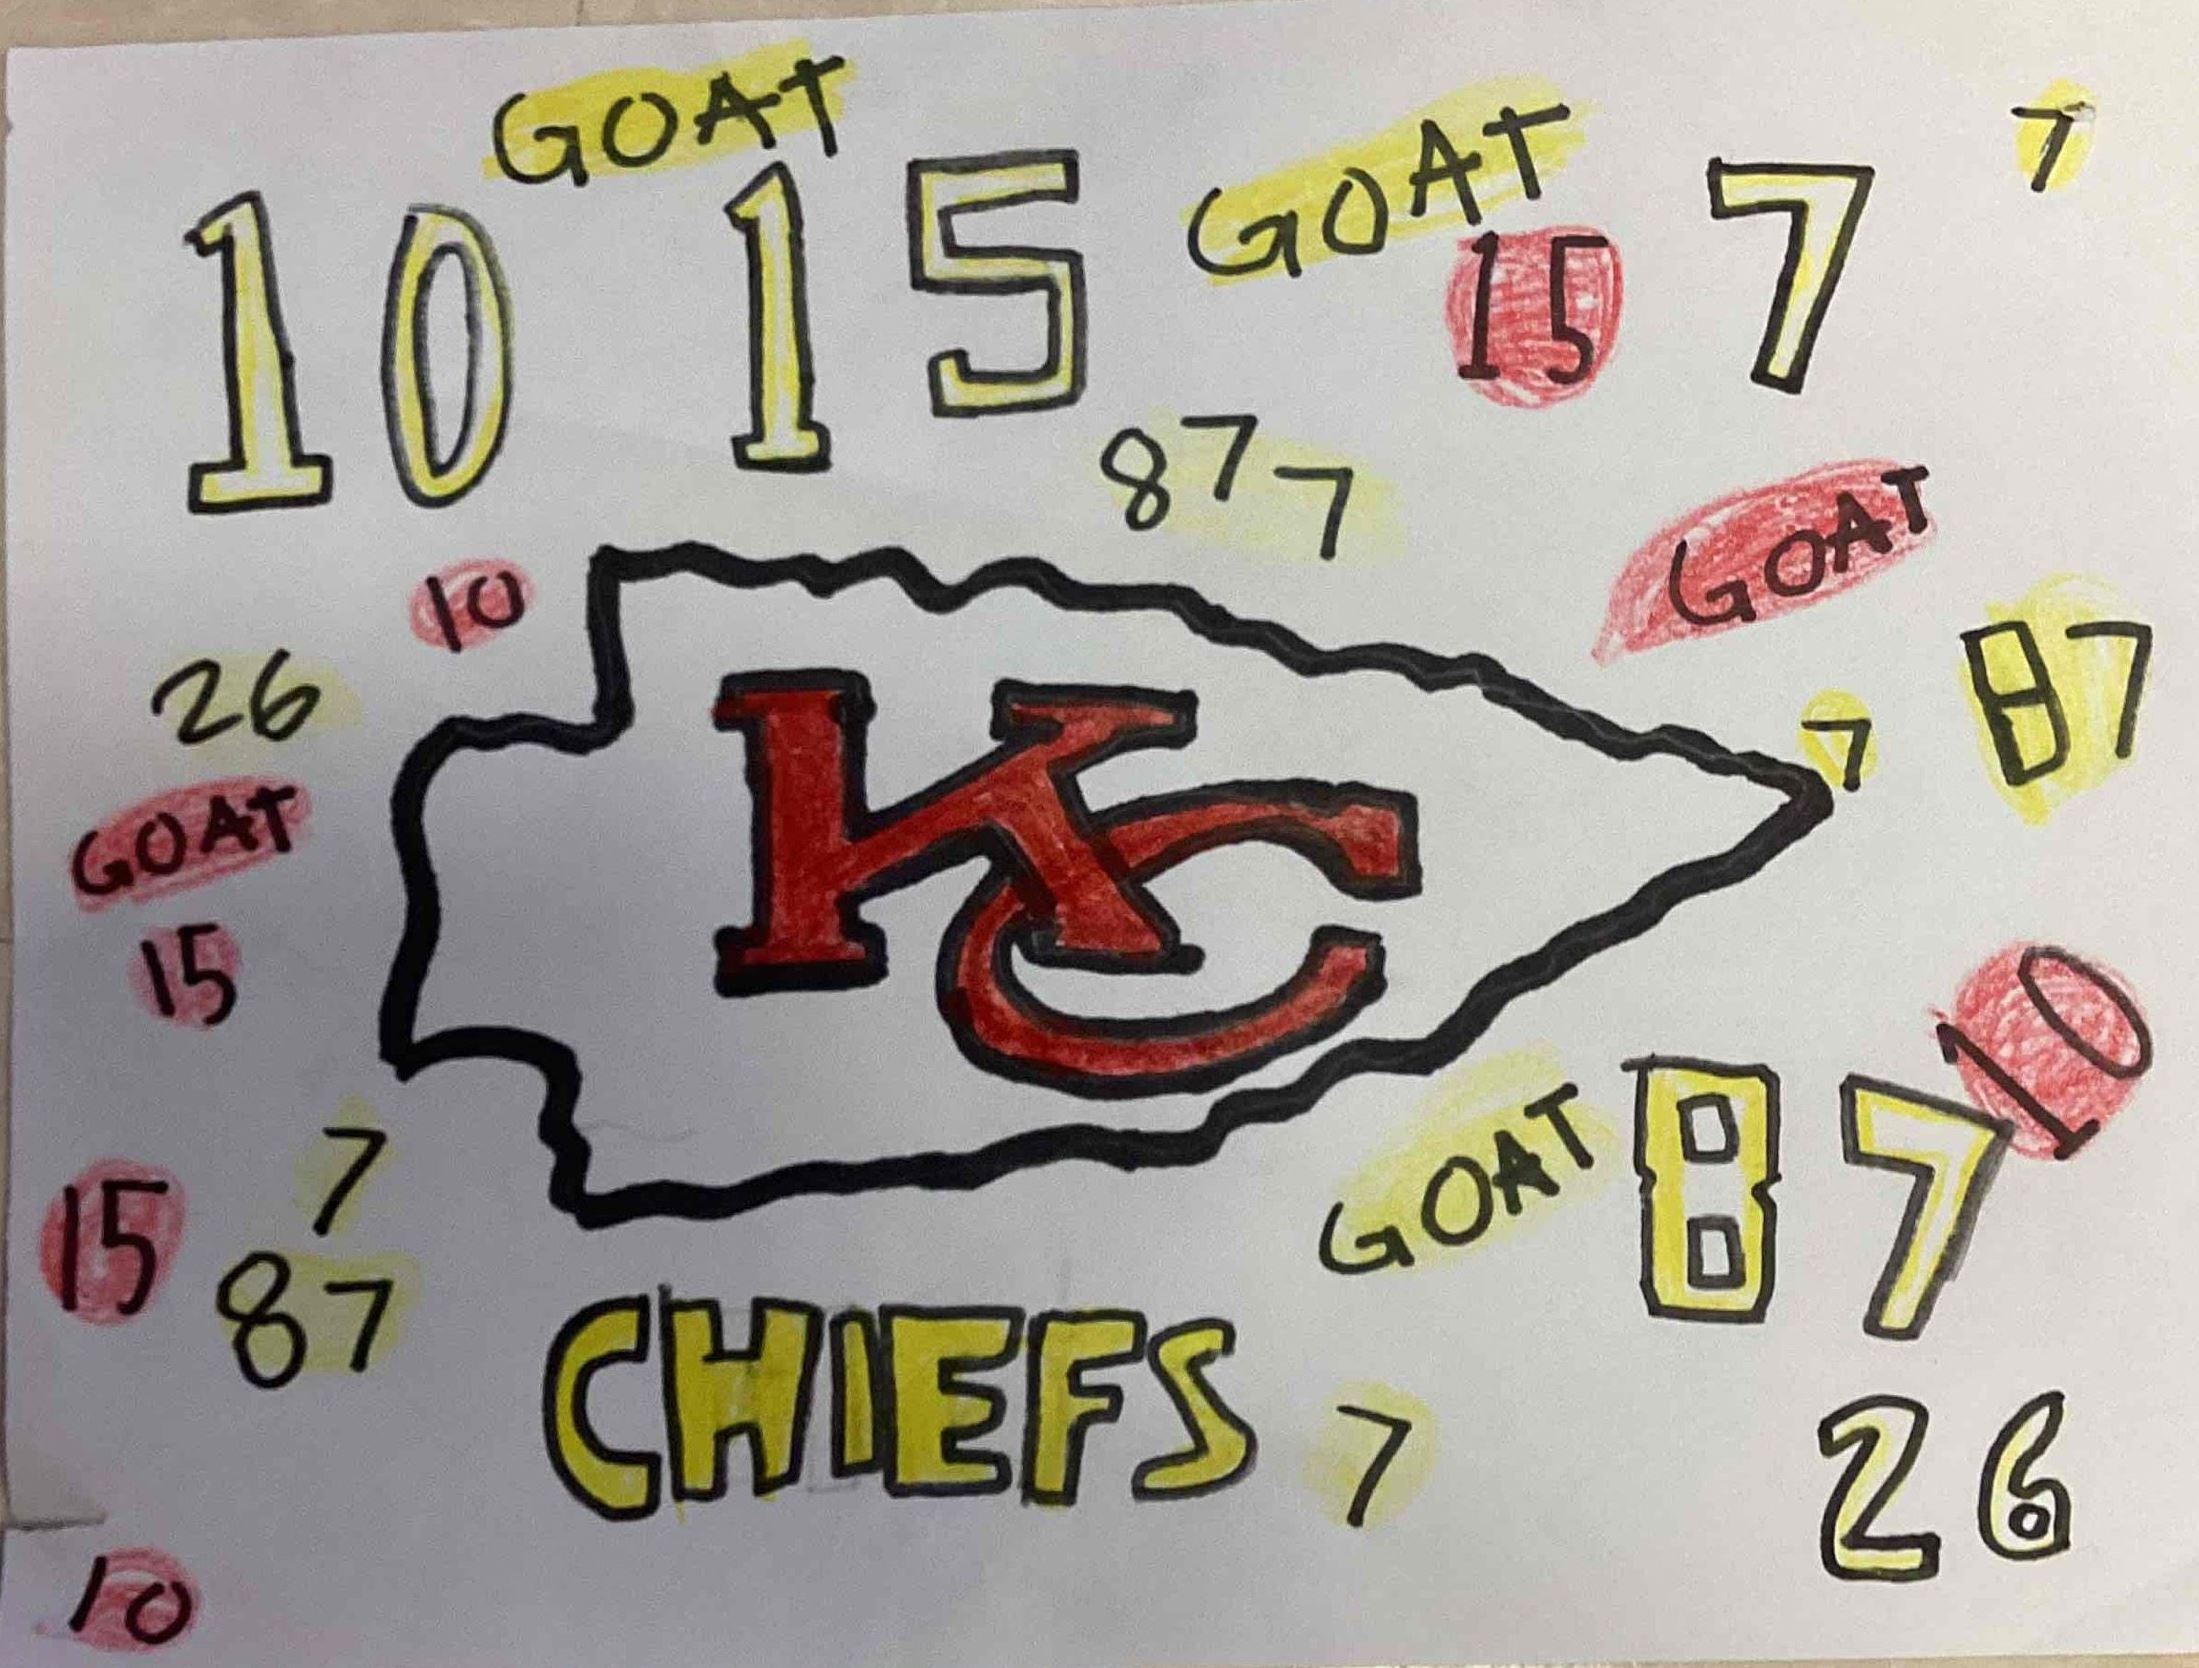 GOAT
GOAT
7
10
15
15
7
87
7
GOAT
10
26
87
KC
7
GOAT
15
10
7
GOAT
87
15
87
CHIEFS
7
26
10